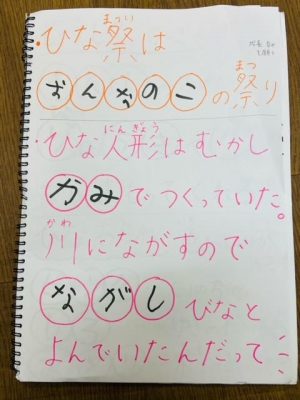 ・ひな祭は
まつり
おんなのこの祭り
まつ
・ひな人形はむかし
にんぎょう
かみでつくっていた。
川にながすので
かわ
ながしびなと
よんでいたんだって